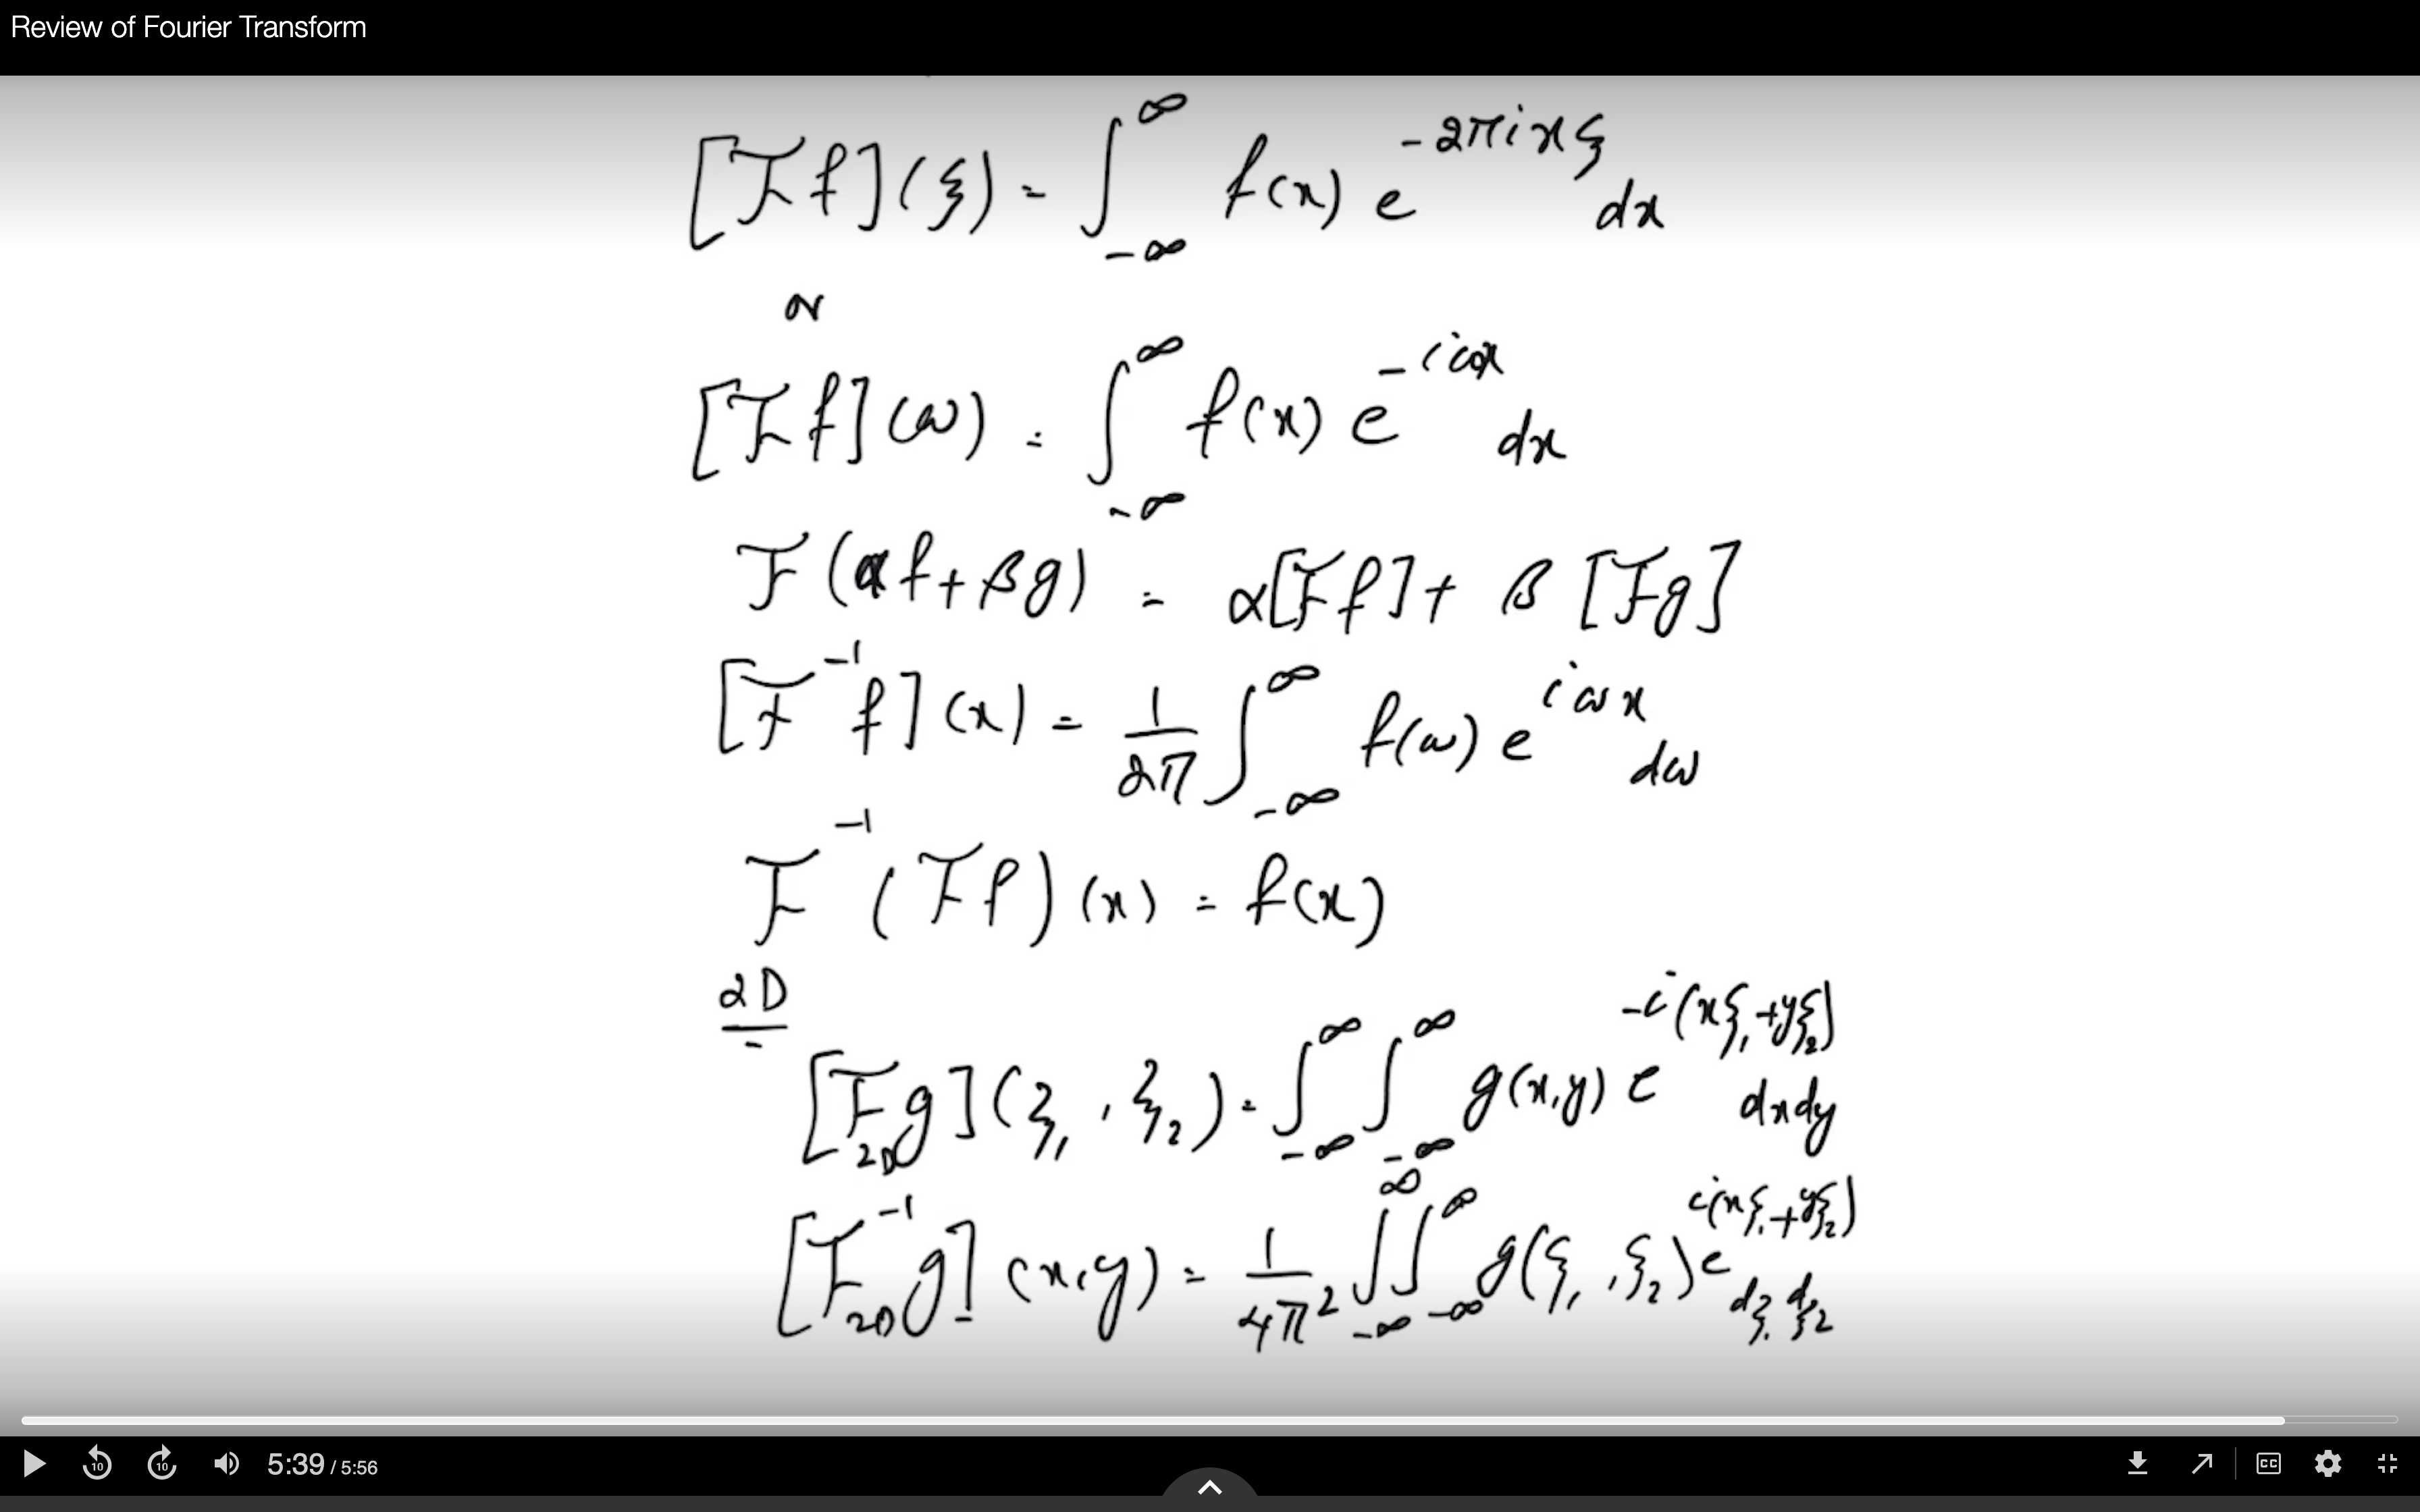 Review of Fourier Transform
[ℱf](ξ) = ∫_{-∞}^{∞} f(x) e^{-2πixξ} dx
or
[ℱf](ω) = ∫_{-∞}^{∞} f(x) e^{-iωx} dx
ℱ(αf + βg) = α[ℱf] + β[ℱg]
[ℱ^{-1}f](x) = 1/2π ∫_{-∞}^{∞} f(ω) e^{iωx} dω
ℱ^{-1}(ℱf)(x) = f(x)
2D
[ℱ_{2D}g](ξ₁, ξ₂) = ∫_{-∞}^{∞} ∫_{-∞}^{∞} g(x,y) e^{-i(xξ₁+yξ₂)} dxdy
[ℱ_{2D}^{-1}g](x,y) = 1/4π² ∫_{-∞}^{∞} ∫_{-∞}^{∞} g(ξ₁, ξ₂) e^{i(xξ₁+yξ₂)} dξ₁ dξ₂
10 10 5:39 / 5:56 CC